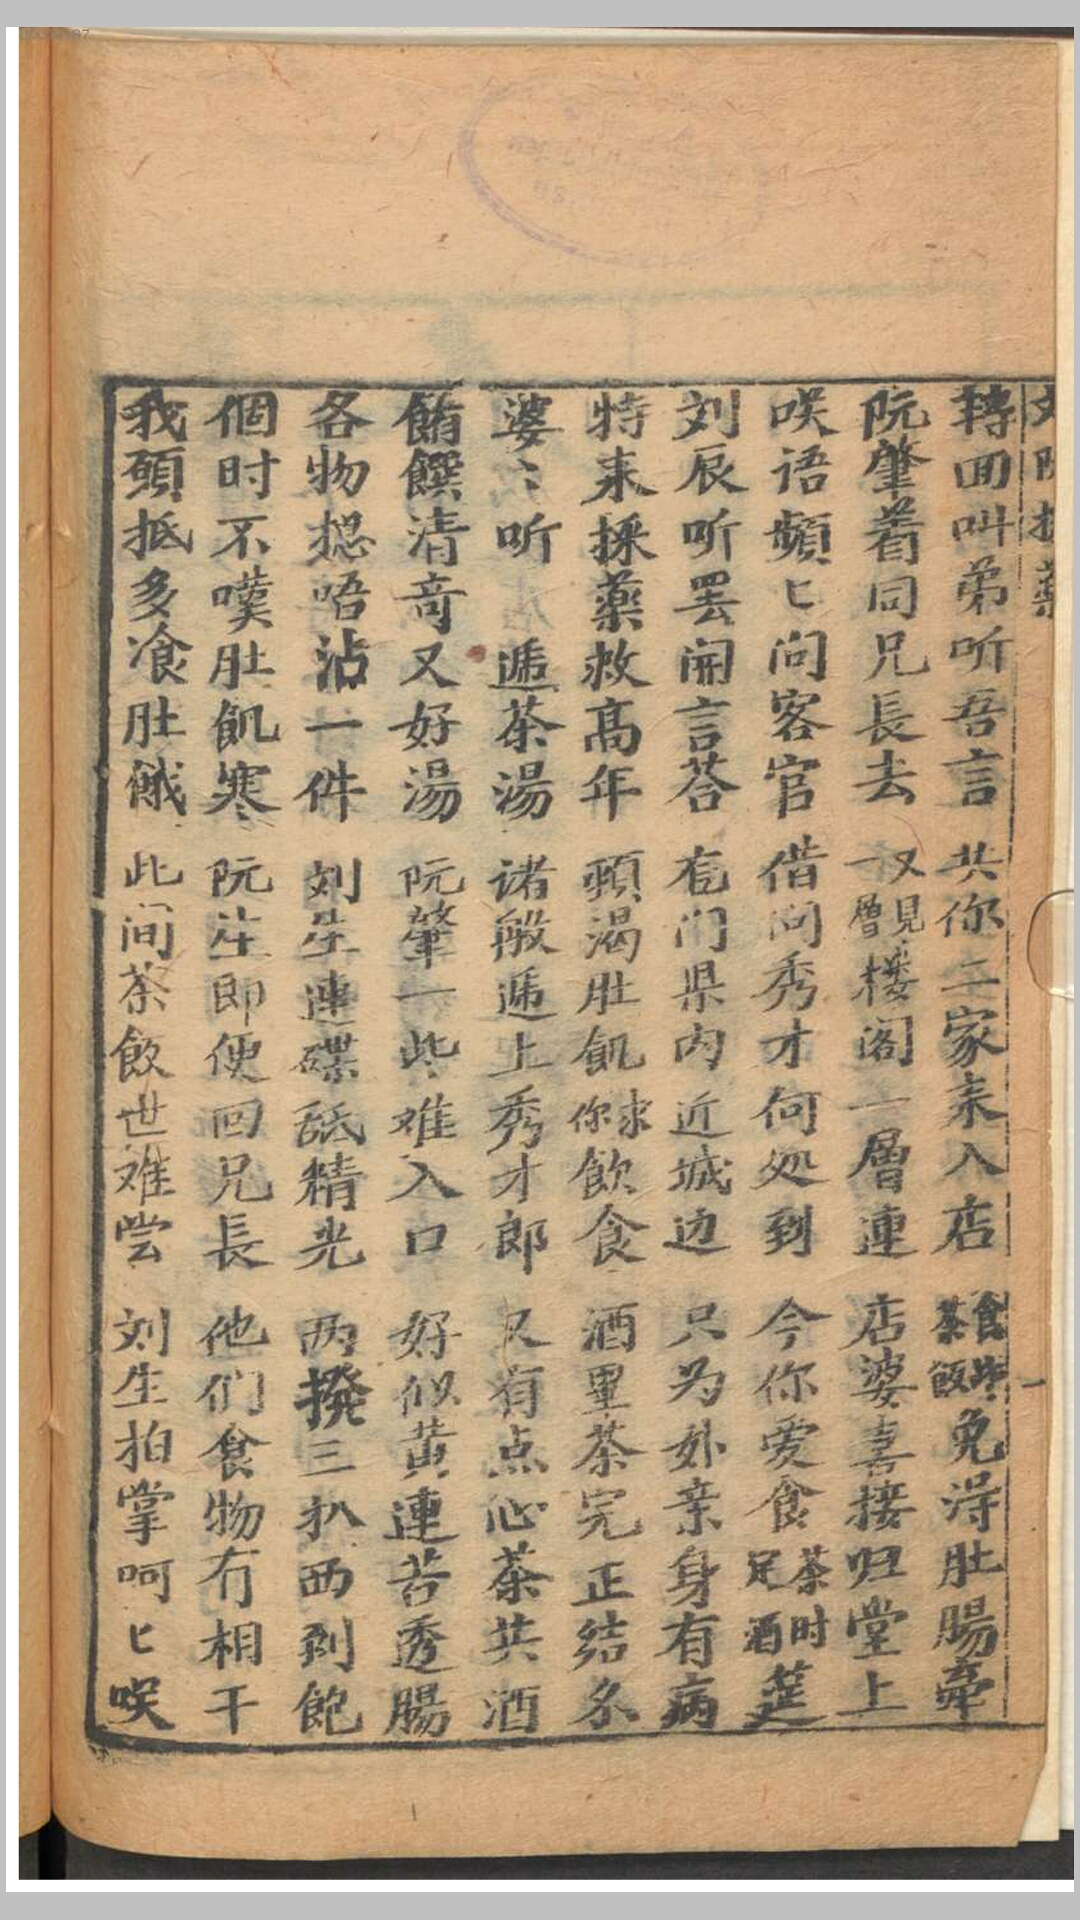 轉囬叫弟听吾言　共你二家来入店　食些茶飯免淂肚腸牽
阮肇着同兄長去　又見一層楼阁一層連　店婆喜接归堂上
咲语頻匕问客官　借问秀才何处到　今你爱食茶时定酒筵
刘辰听罢開言荅　有门県内近城边　只为外亲身有病
特来採藥救高年　頸渴肚飢求你飲食　酒里茶完正结尔
婆〻听　遞茶湯　诸般遞上秀才郎　又有点心茶共酒
餚饌清竒又好湯　阮肇一些难入口　好似黄連苦透腸
各物揔唔沾一件　刘生連碟舐精光　两撥三扒西剥飽
個时不嘆肚飢寒　阮生即便回兄長　他们食物冇相干
我頭抵多飡肚餓　此间茶飲世难尝　刘生拍掌呵匕咲